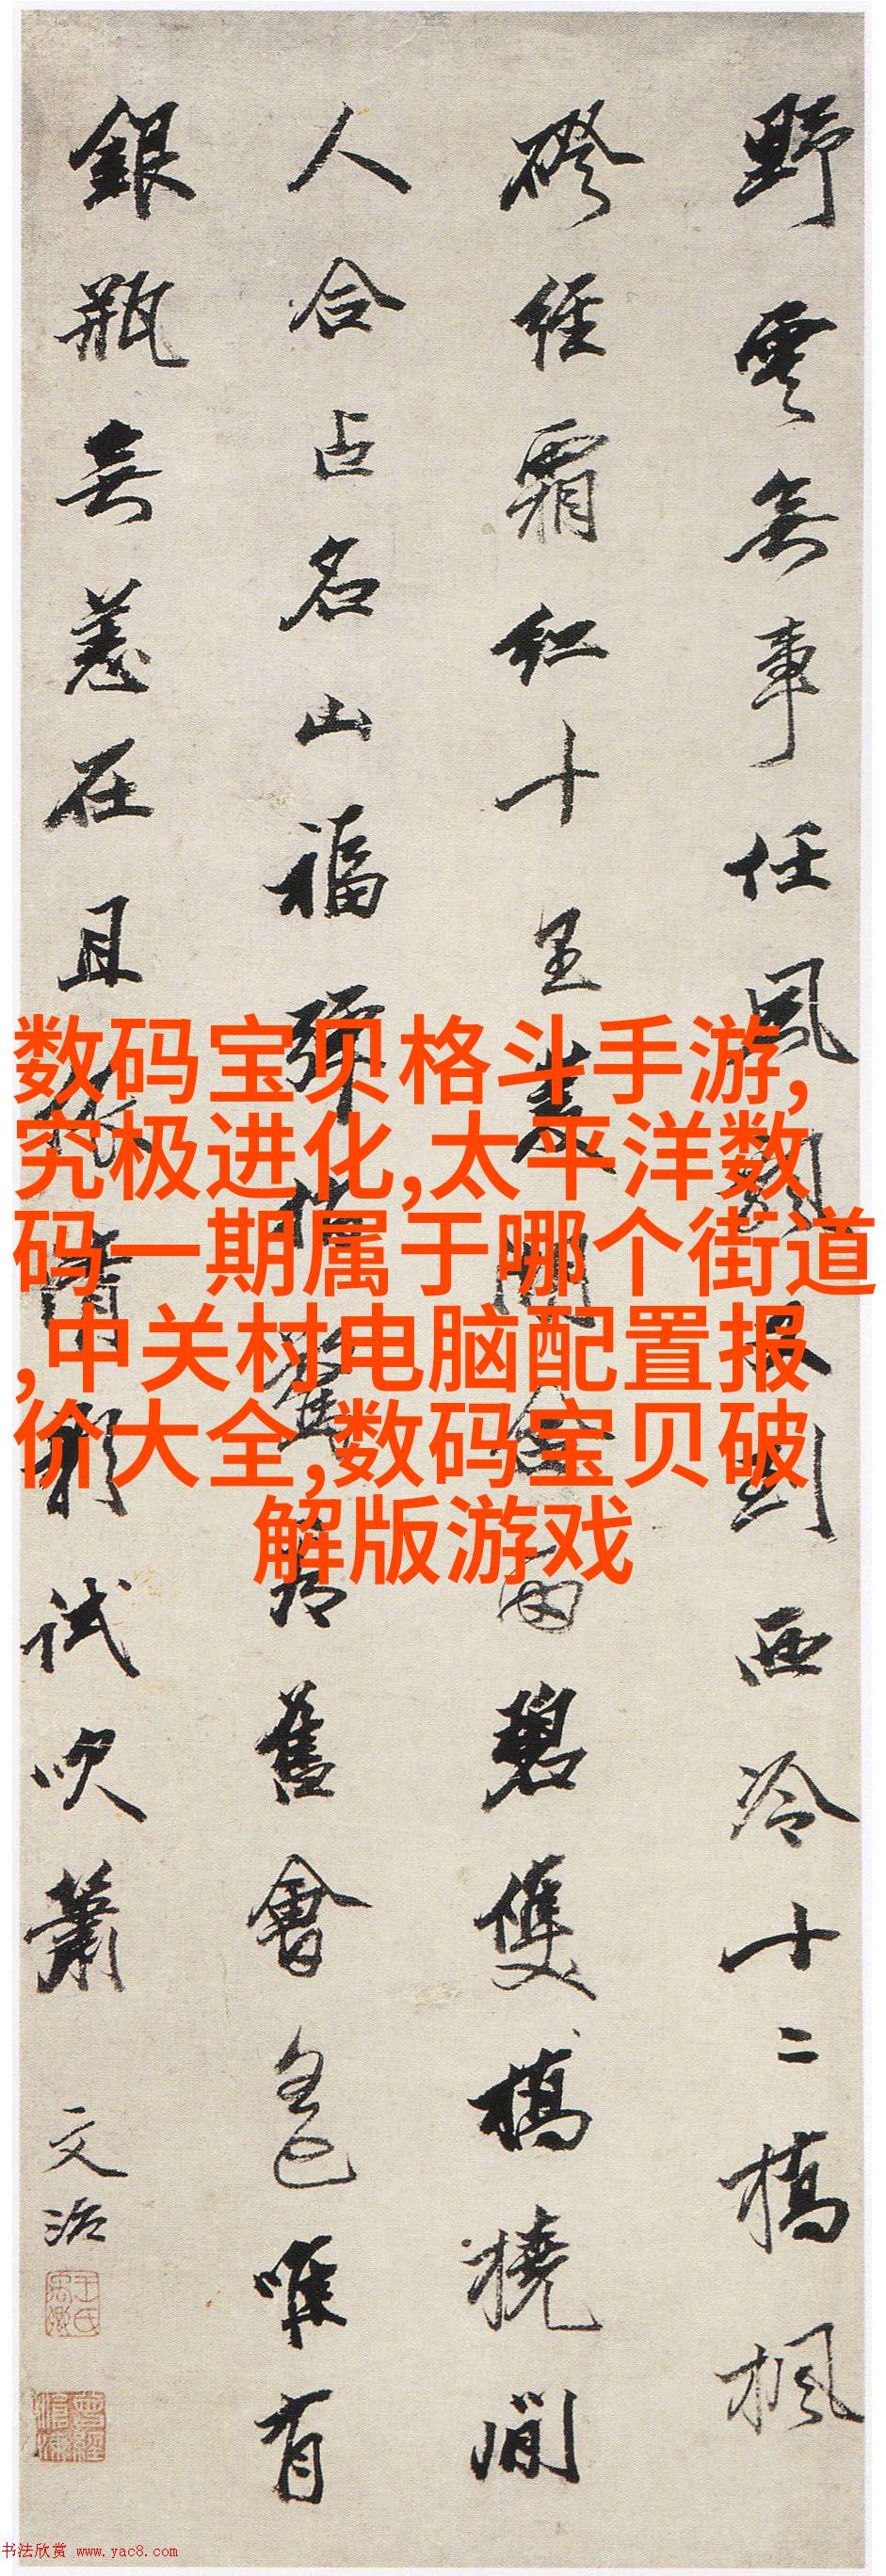 野雲無事任風又到西泠十二橋楓
磴經霜紅十里菱湖含雨碧雙橋橈閒
人合占名山福舊會唯有
銀瓶無恙在且依清影試吹簫
文治
数码宝贝格斗手游,
究极进化,太平洋数
码一期属于哪个街道
,中关村电脑配置报
价大全,数码宝贝破
解版游戏
书法欣赏 www.yac8.com